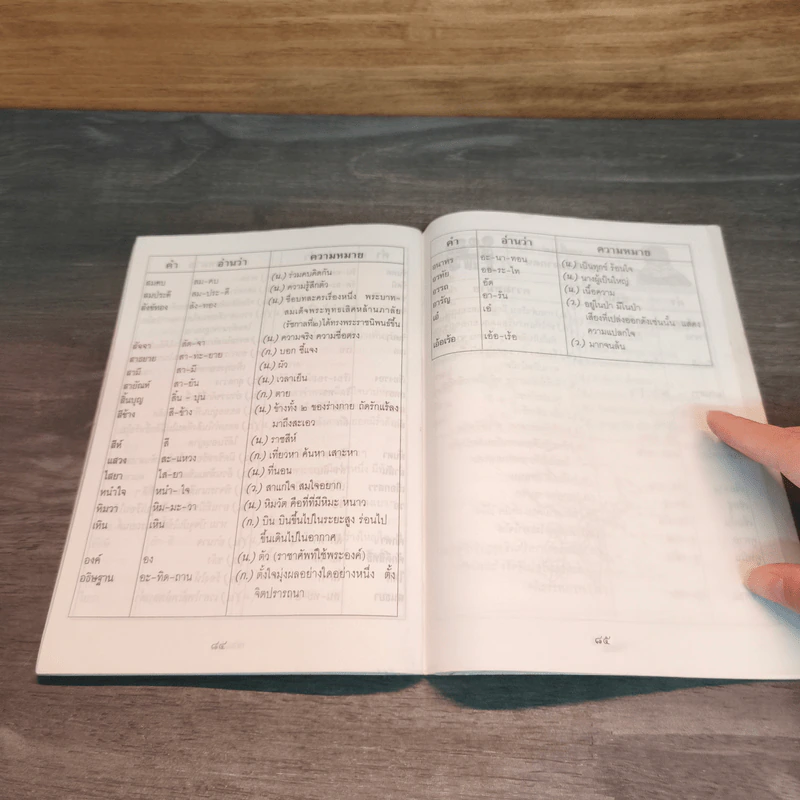 คำ อ่านว่า ความหมาย
สมคบ สม-คบ (น.) ร่วมคบคิดกัน
สมประดี สม-ประ-ดี (น.) ความรู้สึกตัว
สังข์ทอง สัง-ทอง (น.) ชื่อบทละครเรื่องหนึ่ง พระบาท-
สมเด็จพระพุทธเลิศหล้านภาลัย
(รัชกาลที่๒) ได้ทรงพระราชนิพนธ์ขึ้น
สัจจา สัด-จา (น.) ความจริง ความซื่อตรง
สาธยาย สา-ทะ-ยาย (ก.) บอก ชี้แจง
สามี สา-มี (น.) ผัว
สายัณห์ สา-ยัน (น.) เวลาเย็น
สิ้นบุญ สิ้น - บุน (ก.) ตาย
สีข้าง สี-ข้าง (น.) ข้างทั้ง ๒ ของร่างกาย ถัดรักแร้ลง
มาถึงสะเอว
สีห์ สี (น.) ราชสีห์
แสวง สะ-แหวง (ก.) เที่ยวหา ค้นหา เสาะหา
ไสยา ไส-ยา (น.) ที่นอน
หนำใจ หนำ-ใจ (ว.) สาแก่ใจ สมใจอยาก
หิมวา หิม-มะ-วา (น.) หิมวัต คือที่ที่มีหิมะ หนาว
เหิน เหิน (ก.) บิน บินขึ้นไปในระยะสูง ร่อนไป
ขึ้นเดินไปในอากาศ
องค์ อง (น.) ตัว (ราชาศัพท์ใช้พระองค์)
อธิษฐาน อะ-ทิด-ถาน (ก.) ตั้งใจมุ่งผลอย่างใดอย่างหนึ่ง ตั้ง
จิตปรารถนา
๘๔
คำ อ่านว่า ความหมาย
อะ-นา-ทอน (น.) เป็นทุกข์ ร้อนใจ
ออ-ระ-ไท (น.) นางผู้เป็นใหญ่
อรรถ อัด (น.) เนื้อความ
อารัญ อา-รัน (ว.) อยู่ในป่า มีในป่า
เอ๋ เอ๋ เสียงที่เปล่งออกดังเช่นนั้น แสดง
ความแปลกใจ
เอ้อเร้อ เอ้อ-เร้อ (ว.) มากจนล้น
๘๕